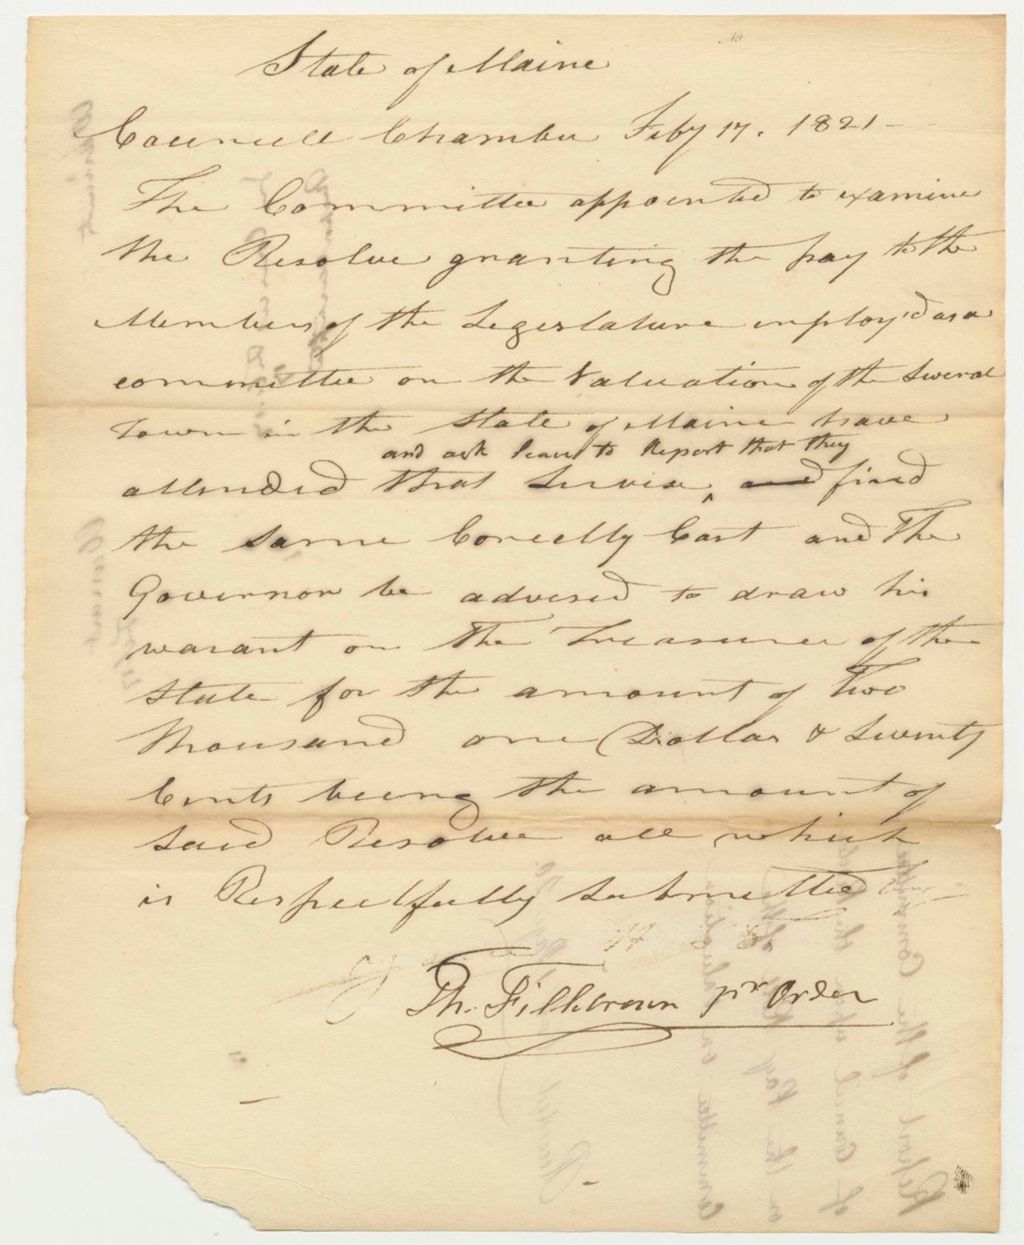 State of Maine
Council Chamber Feby 17. 1821 -
The Committee appointed to examine
the Resolve granting the pay to the
Members of the Legeslature imploy'd as a
committee on the Valuation of the Sweral
Towns in the State of Maine have
and ask leave to Report that they
attended that Service ‸ and find
the same Correctly Cast and The
Governor be advised to draw his
warant on The Treasurer of the
State for the amount of Two
thousand one Dollar & Seventy
Cents being the amount of
said Resolve all which
is Respectfully submitted
Th. Fillebrown pr Order
Report of the Committee
of Council upon the
on the Pay Roll of the
Committee on Valuation